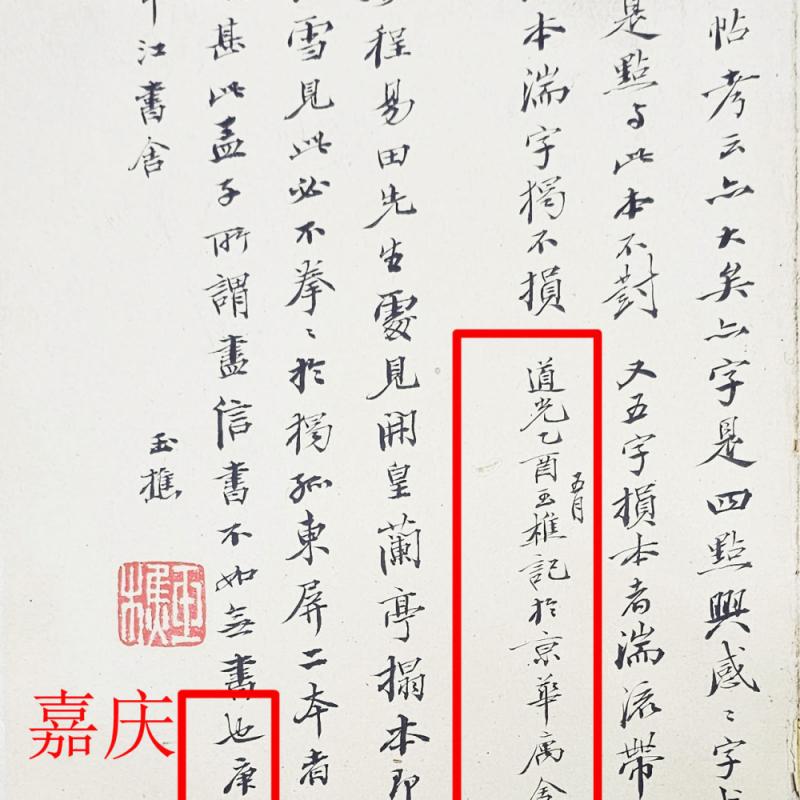 帖考云亦大矣亦字是四點興感〻字
是點与此本不對 又五字損本者湍流帶
本湍字獨不損 道光乙酉五月玉樵記於京華寓舍
程易田先生處見開皇蘭亭搨本即
雪見此必不拳〻於獨孤東屏二本者
甚此孟子所謂盡信書不如無書也庚
江書舍 玉樵
玉樵
嘉庆